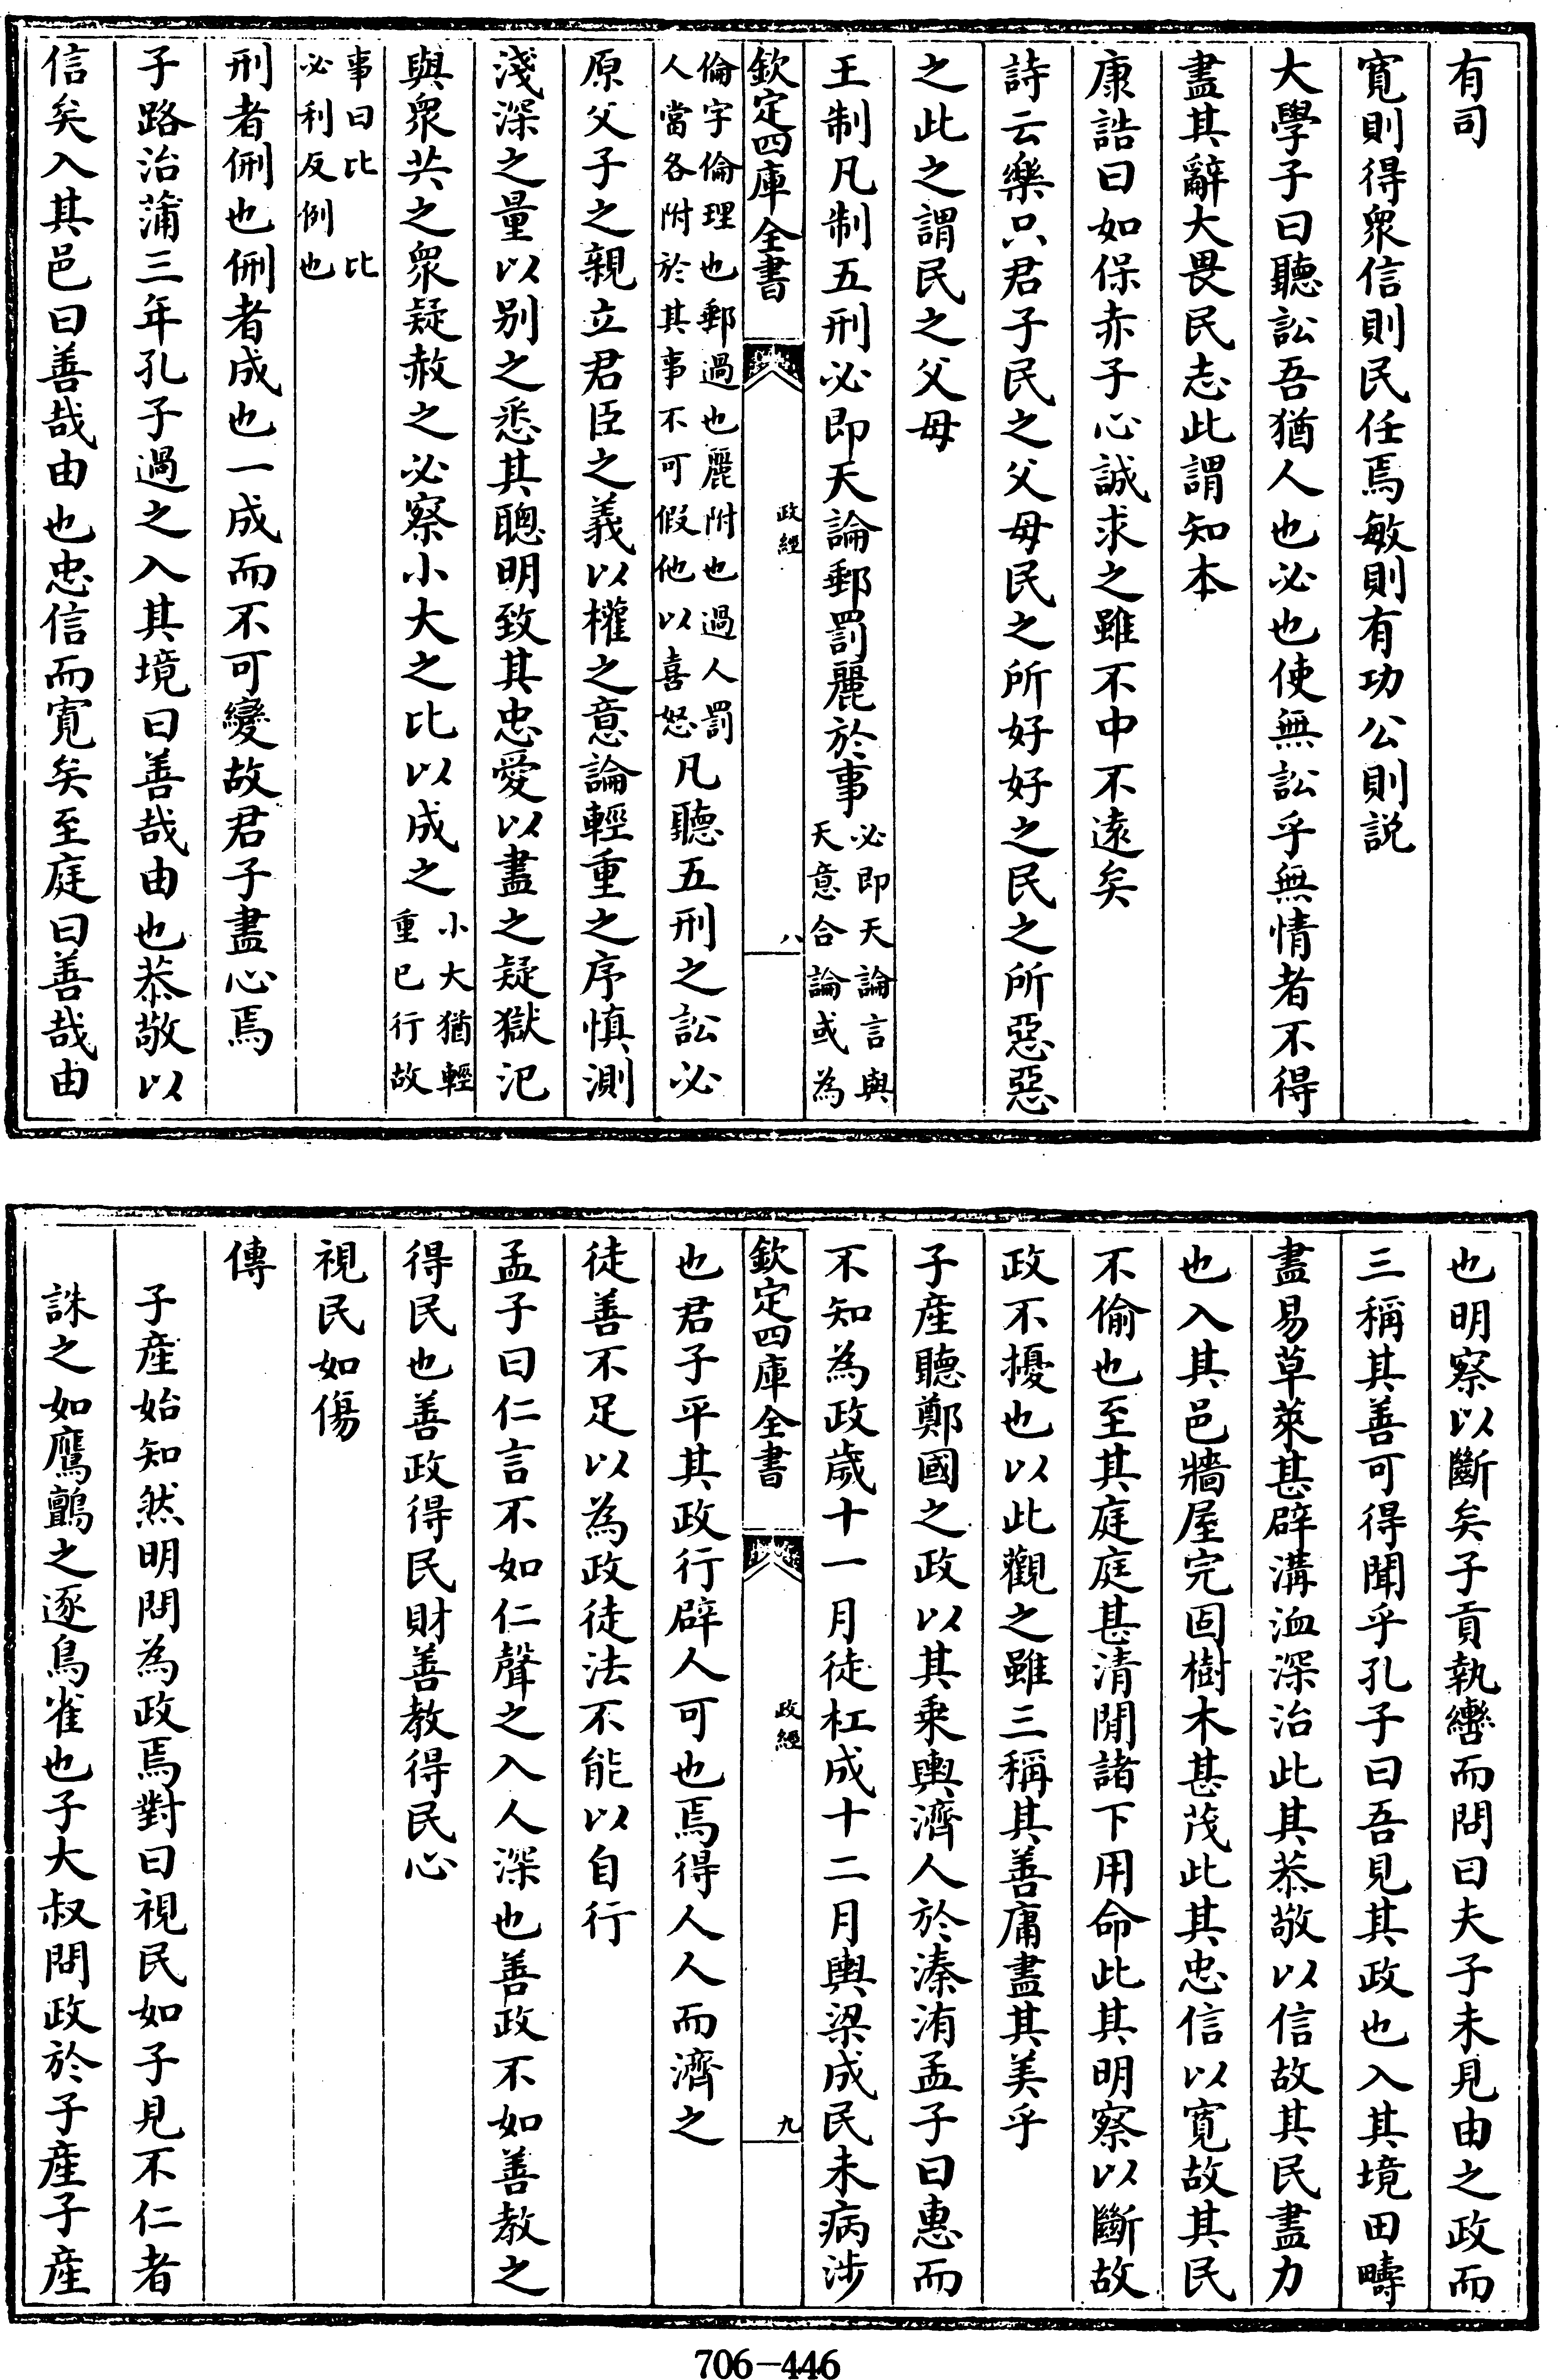 有司
寛則得衆信則民任焉敏則有功公則説
大學子曰聽訟吾猶人也必也使無訟乎無情者不得
盡其辭大畏民志此謂知本
康誥曰如保赤子心誠求之雖不中不遠矣
詩云樂只君子民之父母民之所好好之民之所惡惡
之此之謂民之父母
王制凡制五刑必即天論郵罰麗於事必即天論言與
天意合論或為
欽定四庫全書
政經
八
倫字倫理也郵過也麗附也過人罰
人當各附於其事不可假他以喜怒凡聽五刑之訟必
原父子之親立君臣之義以權之意論輕重之序慎測
淺深之量以别之悉其聰明致其忠愛以盡之疑獄汜
與衆共之衆疑赦之必察小大之比以成之小大猶輕
重已行故
事曰比 比
必利反例也
刑者侀也侀者成也一成而不可變故君子盡心焉
子路治蒲三年孔子過之入其境曰善哉由也恭敬以
信矣入其邑曰善哉由也忠信而寛矣至庭曰善哉由
也明察以斷矣子貢執轡而問曰夫子未見由之政而
三稱其善可得聞乎孔子曰吾見其政也入其境田疇
盡易草萊甚辟溝洫深治此其恭敬以信故其民盡力
也入其邑牆屋完固樹木甚茂此其忠信以寛故其民
不偷也至其庭庭甚清閒諸下用命此其明察以斷故
政不擾也以此觀之雖三稱其善庸盡其美乎
子産聽鄭國之政以其乗輿濟人於溱洧孟子曰惠而
不知為政歲十一月徒杠成十二月輿梁成民未病涉
欽定四庫全書
政經
九
也君子平其政行辟人可也焉得人人而濟之
徒善不足以為政徒法不能以自行
孟子曰仁言不如仁聲之入人深也善政不如善教之
得民也善政得民財善教得民心
視民如傷
傳
子産始知然明問為政焉對曰視民如子見不仁者
誅之如鷹鸇之逐鳥雀也子大叔問政於子産子産
706-446